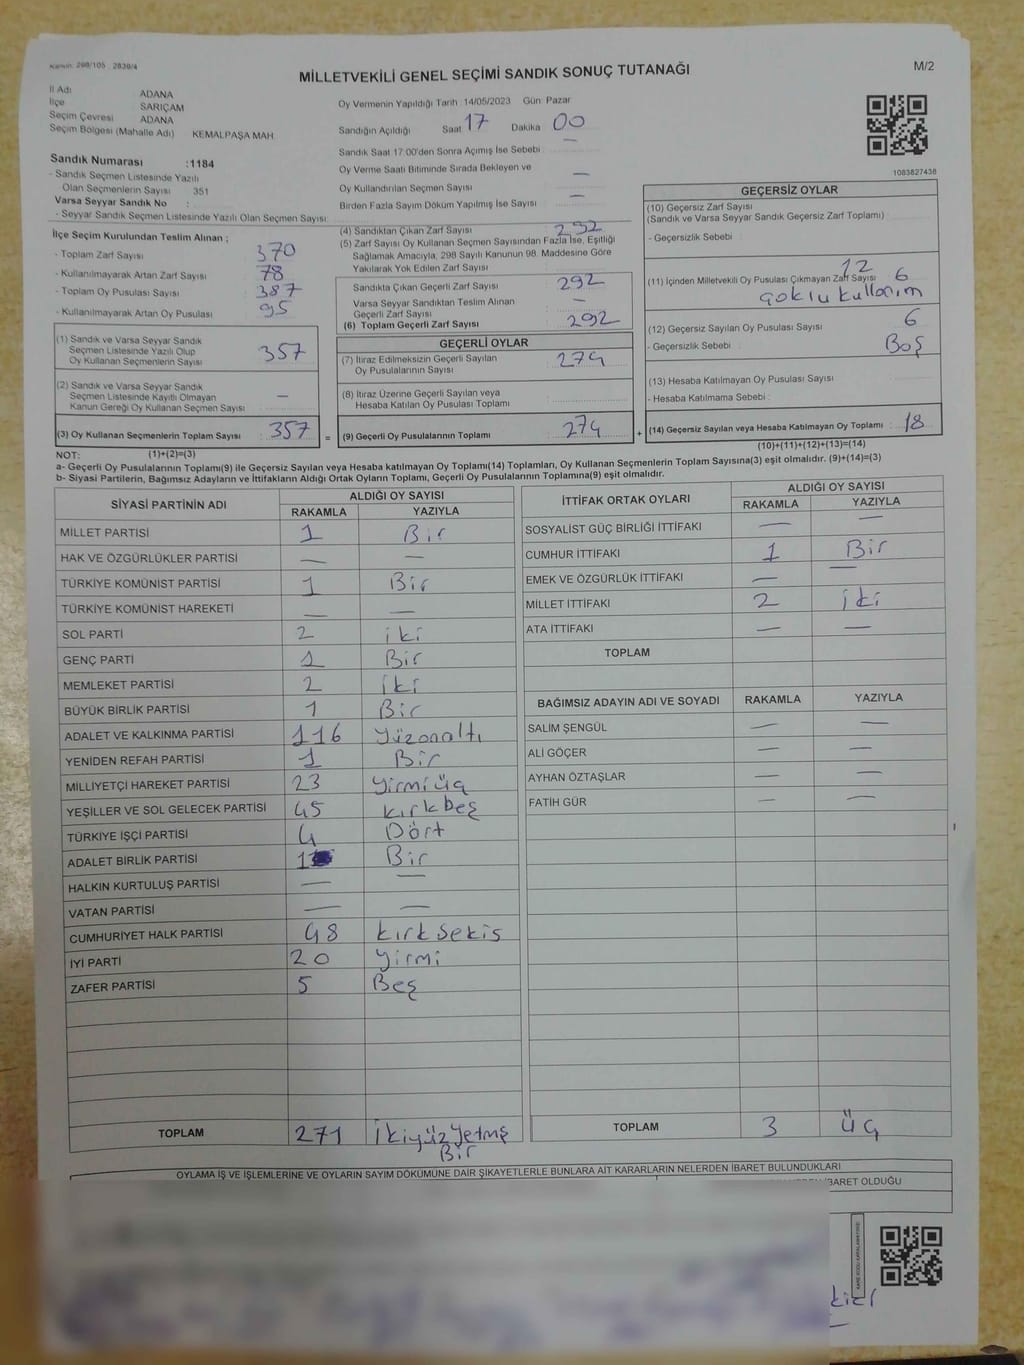 Kanun: 298/105 , 2839/4
MİLLETVEKİLİ GENEL SEÇİMİ SANDIK SONUÇ TUTANAĞI
M/2
İl Adı ADANA
İlçe SARIÇAM
Seçim Çevresi ADANA
Seçim Bölgesi (Mahalle Adı) KEMALPAŞA MAH.
Oy Vermenin Yapıldığı Tarih :14/05/2023 Gün: Pazar
Sandığın Açıldığı Saat 17 Dakika 00
Sandık Saat 17:00'den Sonra Açımış İse Sebebi : —
Oy Verme Saati Bitiminde Sırada Bekleyen ve
Oy Kullandırılan Seçmen Sayısı —
Birden Fazla Sayım Döküm Yapılmış İse Sayısı : —
Sandık Numarası :1184
- Sandık Seçmen Listesinde Yazılı
Olan Seçmenlerin Sayısı 351
Varsa Seyyar Sandık No :
- Seyyar Sandık Seçmen Listesinde Yazılı Olan Seçmen Sayısı:
1083827438
İlçe Seçim Kurulundan Teslim Alınan ;
- Toplam Zarf Sayısı 370
- Kullanılmayarak Artan Zarf Sayısı : 78
- Toplam Oy Pusulası Sayısı : 387
- Kullanılmayarak Artan Oy Pusulası : 95
(1) Sandık ve Varsa Seyyar Sandık
Seçmen Listesinde Yazılı Olup
Oy Kullanan Seçmenlerin Sayısı 357
(2) Sandık ve Varsa Seyyar Sandık
Seçmen Listesinde Kayıtlı Olmayan
Kanun Gereği Oy Kullanan Seçmen Sayısı : —
(3) Oy Kullanan Seçmenlerin Toplam Sayısı : 357 =
(4) Sandıktan Çıkan Zarf Sayısı : 292
(5) Zarf Sayısı Oy Kullanan Seçmen Sayısından Fazla İse, Eşitliği
Sağlamak Amacıyla, 298 Sayılı Kanunun 98. Maddesine Göre
Yakılarak Yok Edilen Zarf Sayısı :
Sandıkta Çıkan Geçerli Zarf Sayısı : 292
Varsa Seyyar Sandıktan Teslim Alınan
Geçerli Zarf Sayısı : —
(6) Toplam Geçerli Zarf Sayısı : 292
GEÇERLİ OYLAR
(7) İtiraz Edilmeksizin Geçerli Sayılan
Oy Pusulalarının Sayısı : 274
(8) İtiraz Üzerine Geçerli Sayılan veya
Hesaba Katılan Oy Pusulası Toplamı :
(9) Geçerli Oy Pusulalarının Toplamı : 274 +
GEÇERSİZ OYLAR
(10) Geçersiz Zarf Sayısı
(Sandık ve Varsa Seyyar Sandık Geçersiz Zarf Toplamı) :
- Geçersizlik Sebebi :
12
(11) İçinden Milletvekili Oy Pusulası Çıkmayan Zarf Sayısı : 6
çoklu kullanım
(12) Geçersiz Sayılan Oy Pusulası Sayısı : 6
- Geçersizlik Sebebi : Boş
(13) Hesaba Katılmayan Oy Pusulası Sayısı :
- Hesaba Katılmama Sebebi :
(14) Geçersiz Sayılan veya Hesaba Katılmayan Oy Toplamı : 18
NOT: (1)+(2)=(3)
(10)+(11)+(12)+(13)=(14)
a- Geçerli Oy Pusulalarının Toplamı(9) ile Geçersiz Sayılan veya Hesaba katılmayan Oy Toplamı(14) Toplamları, Oy Kullanan Seçmenlerin Toplam Sayısına(3) eşit olmalıdır. (9)+(14)=(3)
b- Siyasi Partilerin, Bağımsız Adayların ve İttifakların Aldığı Ortak Oyların Toplamı, Geçerli Oy Pusulalarının Toplamına(9) eşit olmalıdır.
SİYASİ PARTİNİN ADI ALDIĞI OY SAYISI
RAKAMLA YAZIYLA
MİLLET PARTİSİ 1 Bir
HAK VE ÖZGÜRLÜKLER PARTİSİ — —
TÜRKİYE KOMÜNİST PARTİSİ 1 Bir
TÜRKİYE KOMÜNİST HAREKETİ — —
SOL PARTİ 2 iki
GENÇ PARTİ 1 Bir
MEMLEKET PARTİSİ 2 iki
BÜYÜK BİRLİK PARTİSİ 1 Bir
ADALET VE KALKINMA PARTİSİ 116 yüzonaltı
YENİDEN REFAH PARTİSİ 1 Bir
MİLLİYETÇİ HAREKET PARTİSİ 23 yirmi üç
YEŞİLLER VE SOL GELECEK PARTİSİ 45 kırkbeş
TÜRKİYE İŞÇİ PARTİSİ 4 Dört
ADALET BİRLİK PARTİSİ 1 Bir
HALKIN KURTULUŞ PARTİSİ — —
VATAN PARTİSİ — —
CUMHURİYET HALK PARTİSİ 48 kırksekis
İYİ PARTİ 20 yirmi
ZAFER PARTİSİ 5 Beş
TOPLAM 271 ikiyüzyetmş
Bir
İTTİFAK ORTAK OYLARI ALDIĞI OY SAYISI
RAKAMLA YAZIYLA
SOSYALİST GÜÇ BİRLİĞİ İTTİFAKI — —
CUMHUR İTTİFAKI 1 Bir
EMEK VE ÖZGÜRLÜK İTTİFAKI — —
MİLLET İTTİFAKI 2 iki
ATA İTTİFAKI — —
TOPLAM
BAĞIMSIZ ADAYIN ADI VE SOYADI RAKAMLA YAZIYLA
SALİM ŞENGÜL — —
ALİ GÖÇER — —
AYHAN ÖZTAŞLAR — —
FATİH GÜR — —
TOPLAM 3 üç
OYLAMA İŞ VE İŞLEMLERİNE VE OYLARIN SAYIM DÖKÜMÜNE DAİR ŞİKAYETLERLE BUNLARA AİT KARARLARIN NELERDEN İBARET BULUNDUKLARI
BARET OLDUĞU